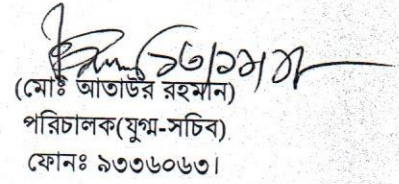 (মোঃ আতাউর রহমান)
পরিচালক(যুগ্ম-সচিব)
ফোনঃ ৯৩৩৬০৬৩।